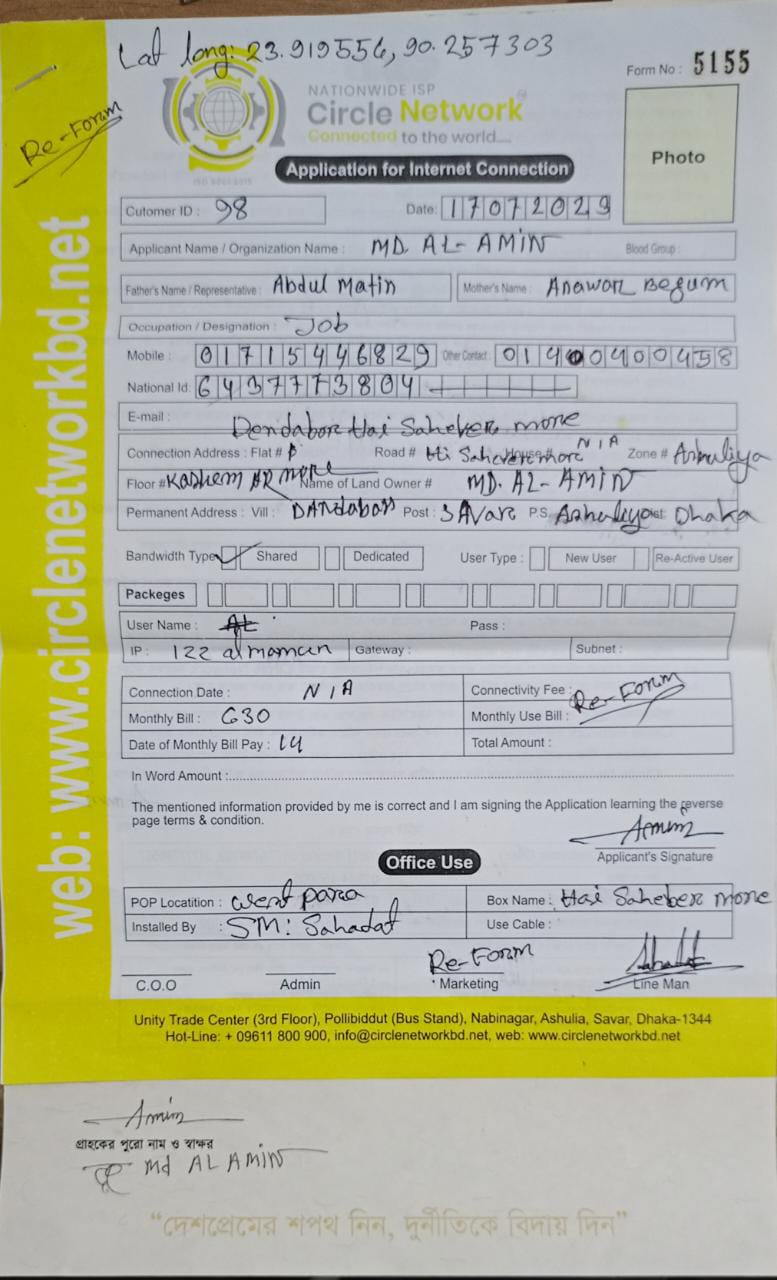 Lat long: 23.919556, 90.257303
Form No : 5155
Re-Form
NATIONWIDE ISP
Circle Network
Connected to the world....
Photo
Application for Internet Connection
Cutomer ID : 98 Date: 17072023
Applicant Name / Organization Name : MD. AL-AMIN Blood Group :
Father's Name / Representative : Abdul Matin Mother's Name : Anawar Begum
Occupation / Designation : Job
Mobile : 01715446829 Other Contact : 01400400458
National Id: 6437773804
E-mail :
Dendabor Hai Saheber more
Connection Address : Flat # Road # Hi Saheber more House# N/A Zone # Ashuliya
Floor # Kashem more Name of Land Owner # MD. AL-AMIN
Permanent Address : Vill : DANdabar Post : SAVar P.S. Ashuliya Dist: Dhaka
Bandwidth Type Shared Dedicated User Type : New User Re-Active User
Packeges
User Name : Pass :
IP : 122 almamun Gateway : Subnet :
Connection Date : N/A Connectivity Fee :
Re-Form
Monthly Bill : 630 Monthly Use Bill :
Date of Monthly Bill Pay : 14 Total Amount :
In Word Amount :
The mentioned information provided by me is correct and I am signing the Application learning the reverse
page terms & condition.
Amin
Applicant's Signature
Office Use
POP Locatition : West para Box Name : Hai Saheber more
Installed By : SM: Sahadat Use Cable :
Re-Form Sahadat
C.O.O Admin Marketing Line Man
Unity Trade Center (3rd Floor), Pollibiddut (Bus Stand), Nabinagar, Ashulia, Savar, Dhaka-1344
Hot-Line: + 09611 800 900, info@circlenetworkbd.net, web: www.circlenetworkbd.net
web: www.circlenetworkbd.net
Amin
গ্রাহকের পুরো নাম ও স্বাক্ষর
Md AL AMIN
“দেশপ্রেমের শপথ নিন, দুর্নীতিকে বিদায় দিন”